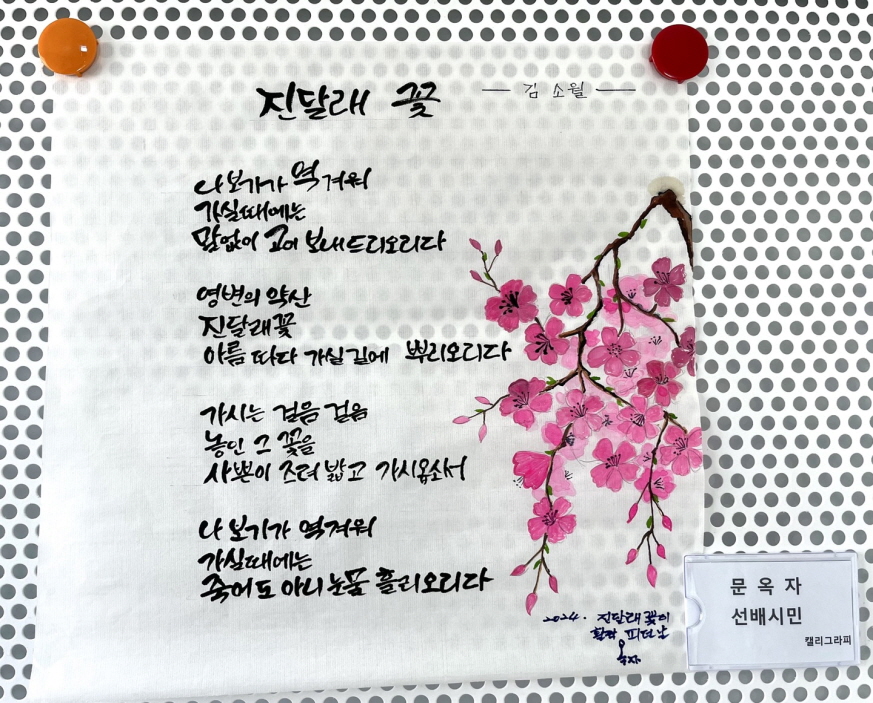 진달래 꽃
김소월
나 보기가 역겨워
가실때에는
말없이 고이 보내드리오리다
영변의 약산
진달래꽃
아름 따다 가실 길에 뿌리오리다
가시는 걸음 걸음
놓인 그 꽃을
사뿐이 즈려 밟고 가시옵소서
나 보기가 역겨워
가실때에는
죽어도 아니 눈물 흘리오리다
2024. 진달래꽃이
활짝 피던 날
옥자
문 옥 자
선배시민
캘리그라피